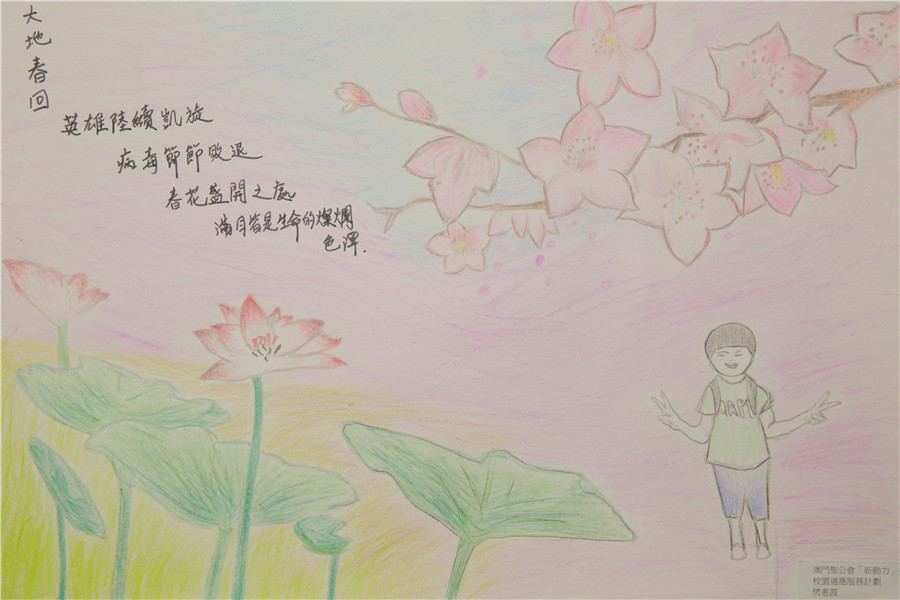 大地春回
英雄陸續凱旋
病毒節節敗退
春花盛開之處
滿目皆是生命的燦爛
色澤.
澳門聖公會「新動力」
校園適應服務計劃